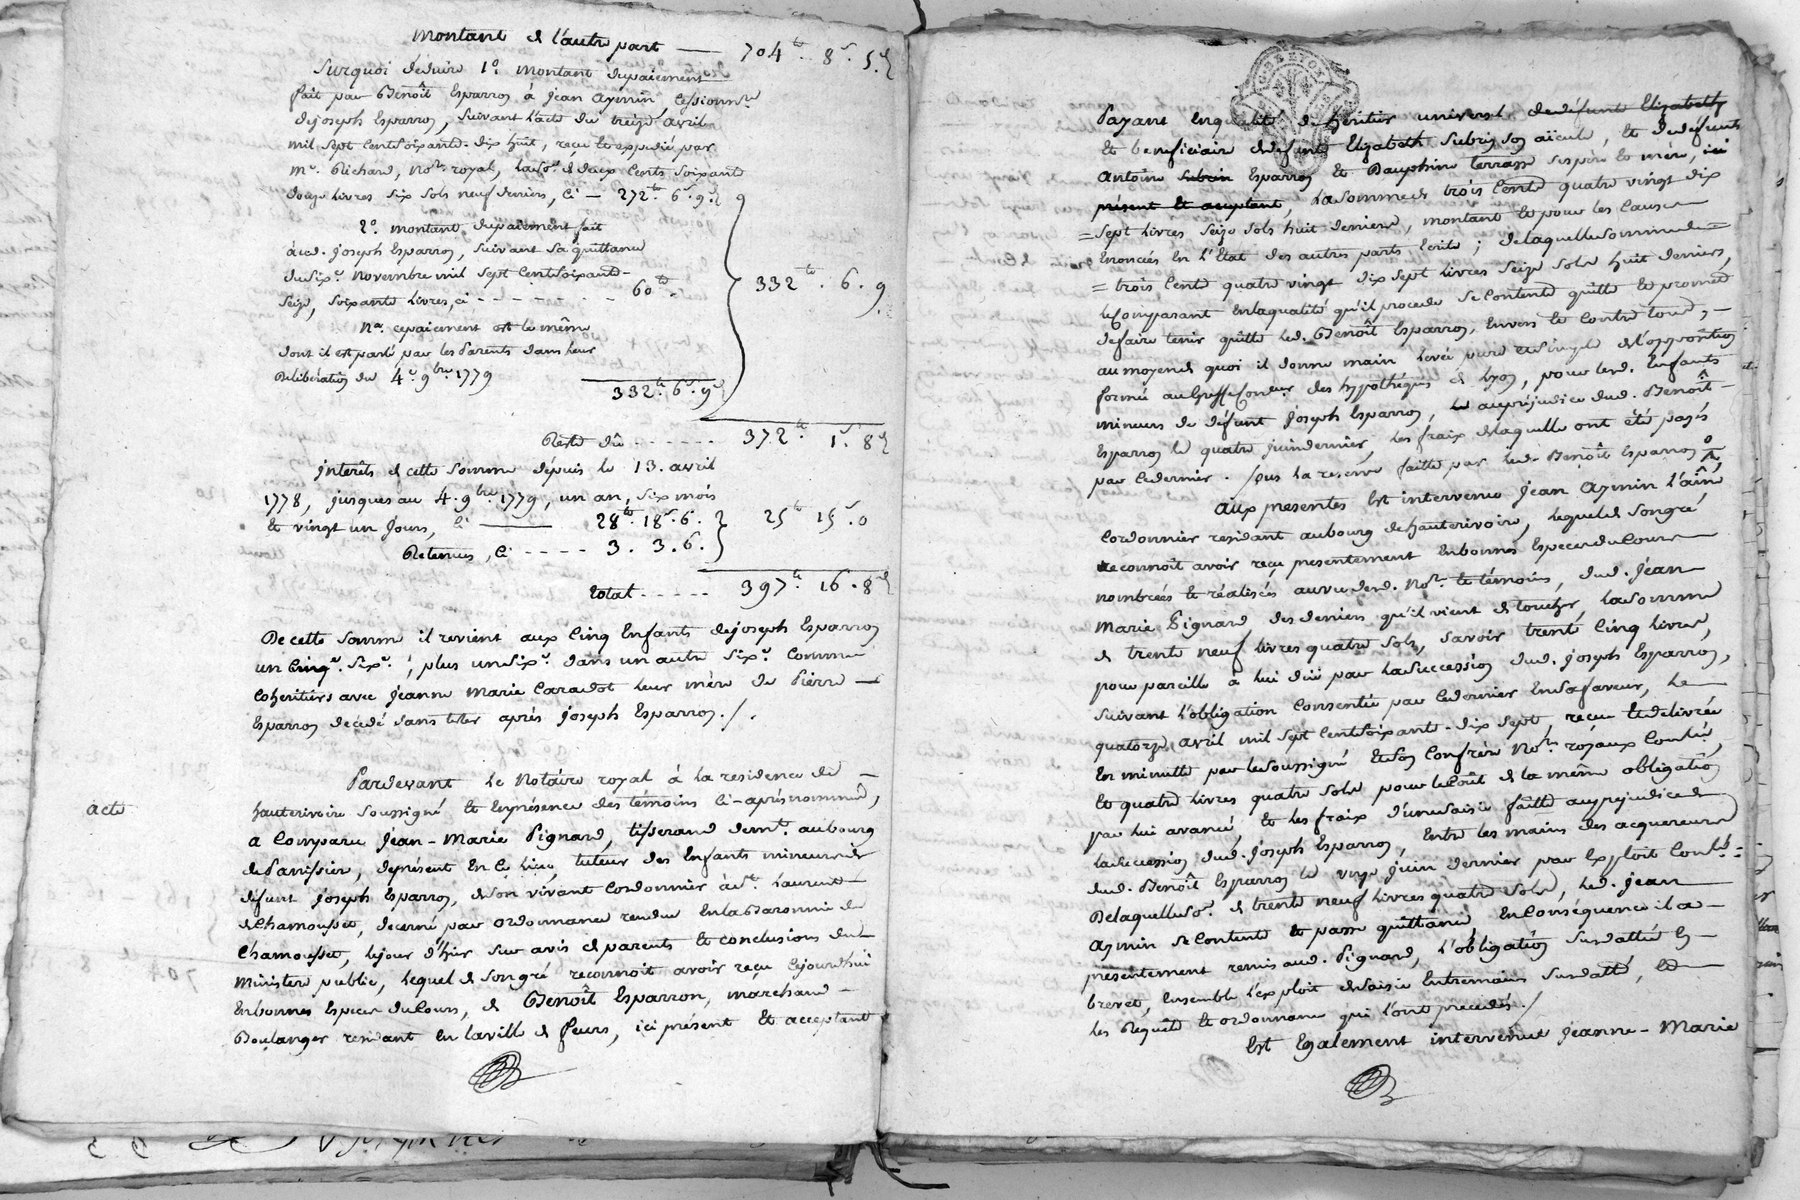 montant de l'autre part — 704 tt. 8 s. 5 d.
Surquoi déduire 1°. montant dupaiement
fait par Benoît Esparron à jean aymin, Cessionre.
dejoseph Esparron, Suivant l'acte du treize avril
mil sept centsoixante-dix huit, reçu et expedié par
me. Richard, Nore. royal, laso. de deux cents soixante
douze livres six sols neuf deniers, ci — 272 tt. 6 s. 9 d.
2°. montant dupaiement fait
aud. joseph Esparron, suivant sa quittance
dusix. novembre mil sept centsoixante-
Seize, soixante livres, ci - - - - - - - - 60 tt.
332 tt. 6. 9.
Na. cepaiement est le même
dont il est parlé par les Parents dans leur
Deliberation du 4e. 9bre. 1779
332 tt. 6 s. 9 d.
Reste dû - - - - - - 372 tt. 1 s. 8 d.
Interêts de cette somme dépuis le 13. avril
1778, jusques au 4. 9bre. 1779, un an, six mois
et vingt un jours, ci — 28 tt. 18 s. 6. 25 tt. 15. 0
Retenues, ci - - - - 3. 3. 6.
total - - - - - 397 tt. 16. 8 d.
De cette somme il revient aux cinq Enfants dejoseph Esparron
un cinqe. sixe.; plus unsixe. dans un autre sixe. comme
Coheritiers avec jeanne marie Caradot leur mère de Pierre —
Esparron decedé sans tester après joseph Esparron./.
acte
Pardevant le Notaire royal à la residence de —
hauterivoire soussigné et enprésence des témoins ci-aprésnommés,
a comparu jean-Marie Pignard, tisserand demt. aubourg
depanissiere, deprésent en ce lieu, tuteur des Enfants mineurs de
défunt joseph Esparron, deson vivant cordonnier à st. Laurent
dechamousset, decerné par ordonnance rendue en la Baronnie de
Chamousset, lejour d'hier sur avis de parents et conclusions du
ministere public, lequel de songré reconnoit avoir reçu cejourdhui
enbonnes Especes ducours, de Benoît Esparron, marchand —
Boulanger residant en laville de feurs, ici présent et acceptant
Payant enqualité de heritier universel dedéfunte Elizabeth
et beneficiaire dedéfunte Elizabeth Subrin son aïeule, et dedéfunts
antoine Subrin Esparron et Dauphine terrasse sespère et mère, ici
présent et acceptant, lasomme de trois cents quatre vingt dix
=sept livres seize sols huit deniers, montant et pour les causes
Enoncés en l'Etat des autres parts Ecrite; delaquellesomme de=
=trois cents quatre vingt dix sept livres seize sols huit deniers,
lecomparant enlaqualité qu'il procede se contente quitte et promet
defaire tenir quitte led. Benoît Esparron, Envers et contre tous, —
au moyen de quoi il donne main levée pure etsimple del'opposition
formée augreffe des hypothéques de Lyon, pour lesd. Enfants
mineurs de défunt joseph Esparron, aupréjudice dud. Benoît —
Esparron le quatre juindernier, les frais delaquelle ont été payés
par cedernier. sous la reserve faitte par led. Benoît Esparron
aux presentes est intervenu jean aymin l'aîné
Cordonnier residant aubourg dehauterivoire, lequel de songré
reconnoît avoir reçu presentement enbonnes Especes ducours —
nombrées et réalisées auvu dud. Nore. et témoins, dud. jean
marie Pignard des deniers qu'il vient de toucher, lasomme
de trente neuf livres quatre sols, savoir trente cinq livres,
pour pareille à lui düe par lasuccession dud. joseph Esparron,
suivant l'obligation consentie par cedernier ensafaveur, le —
quatorze avril mil sept centsoixante-dix sept, reçue etdelivrée
en minutte par lesoussigné etson confrère Nores. royaux Controlée,
et quatre livres quatre sols pour lecoût de la même obligation
par lui avancé, et les frais d'unesaisie faitte aupréjudice de
lasuccession dud. joseph Esparron, Entre les mains des acquereurs
dud. Benoît Esparron le onze juin dernier par Exploit Conlé.=
Delaquelleso. de trente neuf livres quatre sols, led. jean
aymin se contente et passe quittance Enconséquence il a —
présentement remis aud. Pignard, l'obligation susdattée en
brevet, ensemble l'exploit desaisie Entremains susdatté, et
les Requête et ordonnance qui l'ont precedés./
Est Egalement intervenue jeanne-Marie